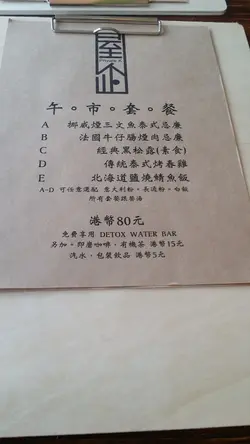 Private K
午。市。套。餐
A 挪威煙三文魚泰式忌廉
B 法國牛仔腸煙肉忌廉
C 經典黑松露(素食)
D 傳統泰式烤春雞
E 北海道鹽燒鯖魚飯
A-D 可任意選配 意大利粉。長通粉。白飯
所有套餐跟餐湯
港幣80元
免費享用 DETOX WATER BAR
另加。即磨咖啡，有機茶 港幣15元
汽水，包裝飲品 港幣5元